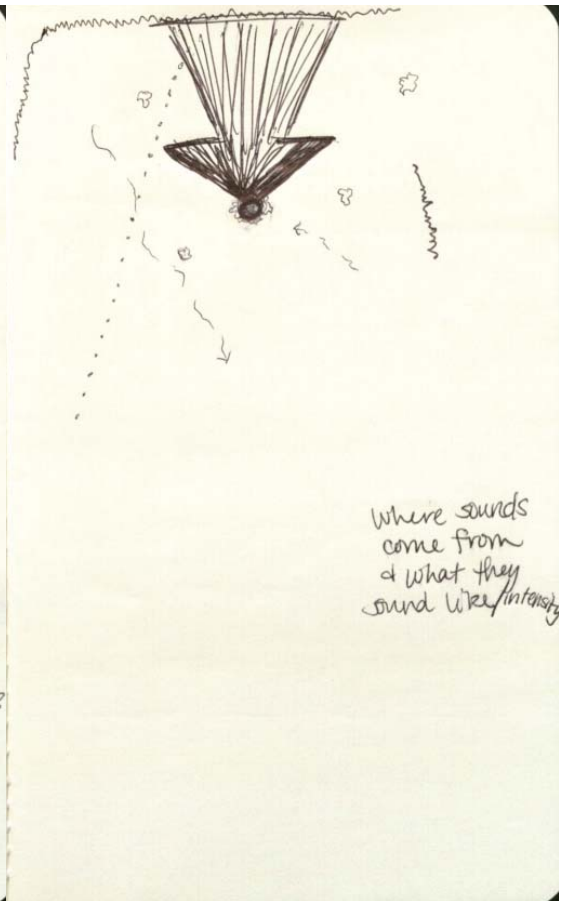 where sounds
come from
& what they
sound like/intensity